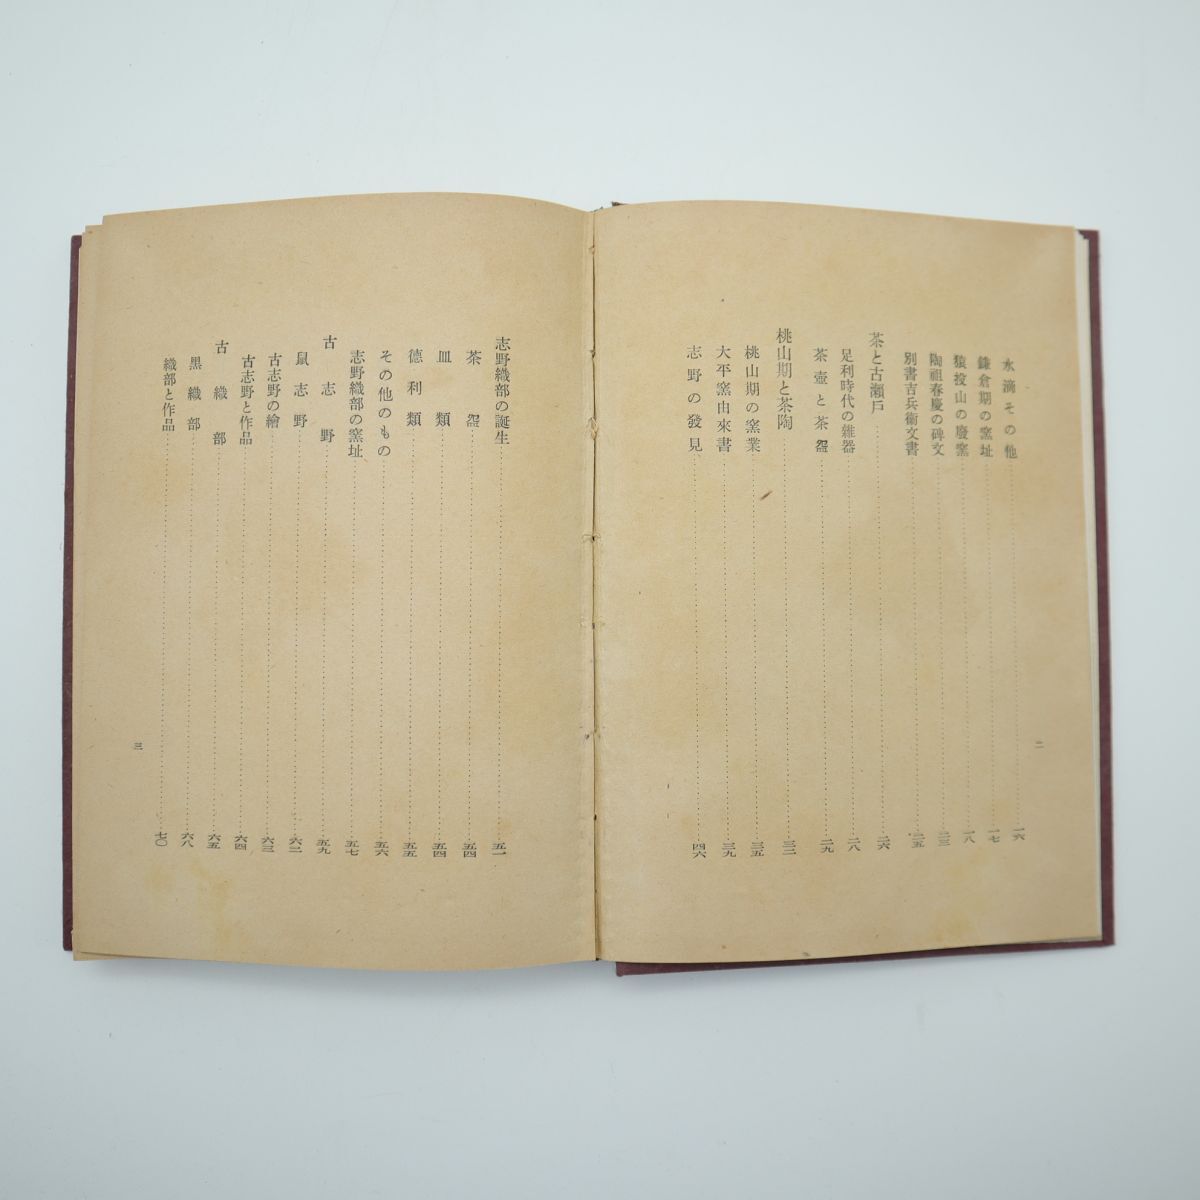 水滴その他……一六
鎌倉期の窯址……一七
猿投山の廢窯……一八
陶祖春慶の碑文……二三
別書吉兵衞文書……二五
茶と古瀬戸……二六
足利時代の雜器……二八
茶壺と茶盌……二九
桃山期と茶陶……三二
桃山期の窯業……三五
大平窯由來書……三九
志野の發見……四六
二
志野織部の誕生……五一
茶盌……五四
皿類……五四
德利類……五五
その他のもの……五六
志野織部の窯址……五七
古志野……五九
鼠志野……六二
古志野の繪……六三
古志野と作品……六四
古織部……六五
黒織部……六八
織部と作品……七〇
三